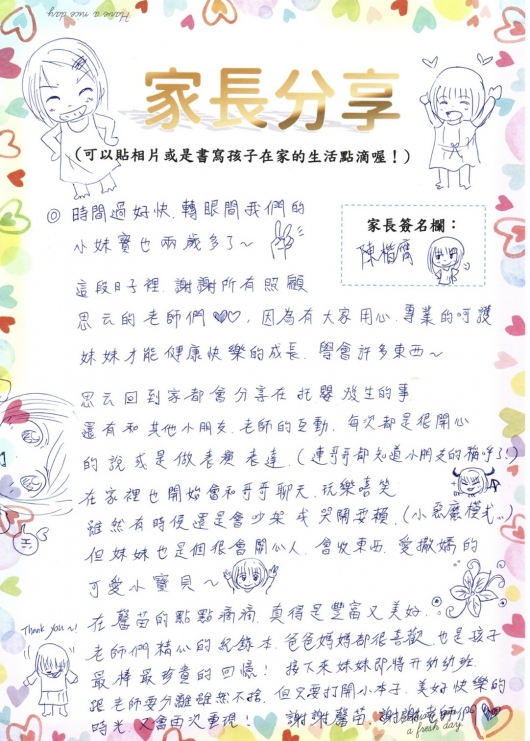 Have a nice day
家長分享
(可以貼相片或是書寫孩子在家的生活點滴喔！)
◎ 時間過好快，轉眼間我們的
小妹寶也兩歲多了~
家長簽名欄：
陳楷齊
這段日子裡，謝謝所有照顧
思云的老師們♥♥，因為有大家用心、專業的呵護
妹妹才能健康快樂的成長，學會許多東西~
思云回到家都會分享在托嬰發生的事
還有和其他小朋友、老師的互動，每次都是很開心
的說或是做表演表達，(連哥哥都知道小朋友的稱呼了!)
在家裡也開始會和哥哥聊天、玩樂嘻笑
雖然有時侯還是會吵架或哭鬧耍賴，(小惡魔模式…)
但妹妹也是個很會關心人、會收東西、愛撒嬌的
可愛小寶貝~
Thank you~!
在馨苗的點點滴滴，真得是豐富又美好，
老師們精心的紀錄本，爸爸媽媽都很喜歡，也是孩子
最棒最珍貴的回憶！接下來妹妹即將升幼幼班
跟老師要分離雖然不捨，但只要打開小本子，美好快樂的
時光，又會再次重現！ 謝謝馨苗，謝謝老師們
a fresh day